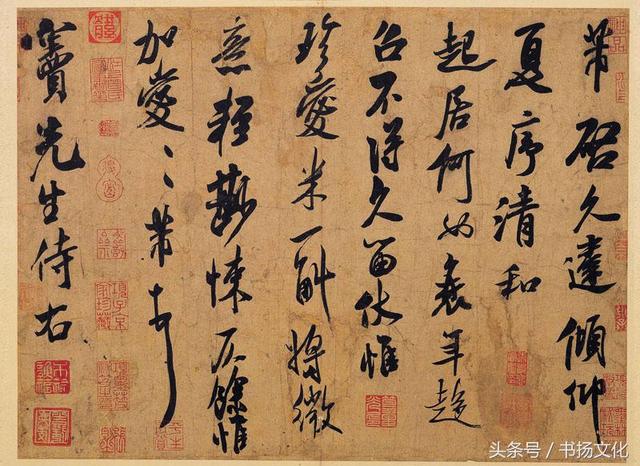 芾啓久違傾仰
夏序清和
起居何如衰年趨
召不得久留伏惟
珍愛米一斛將微
意輕尠悚仄餘惟
加愛〻芾頓首
竇先生侍右
头条号 / 书扬文化